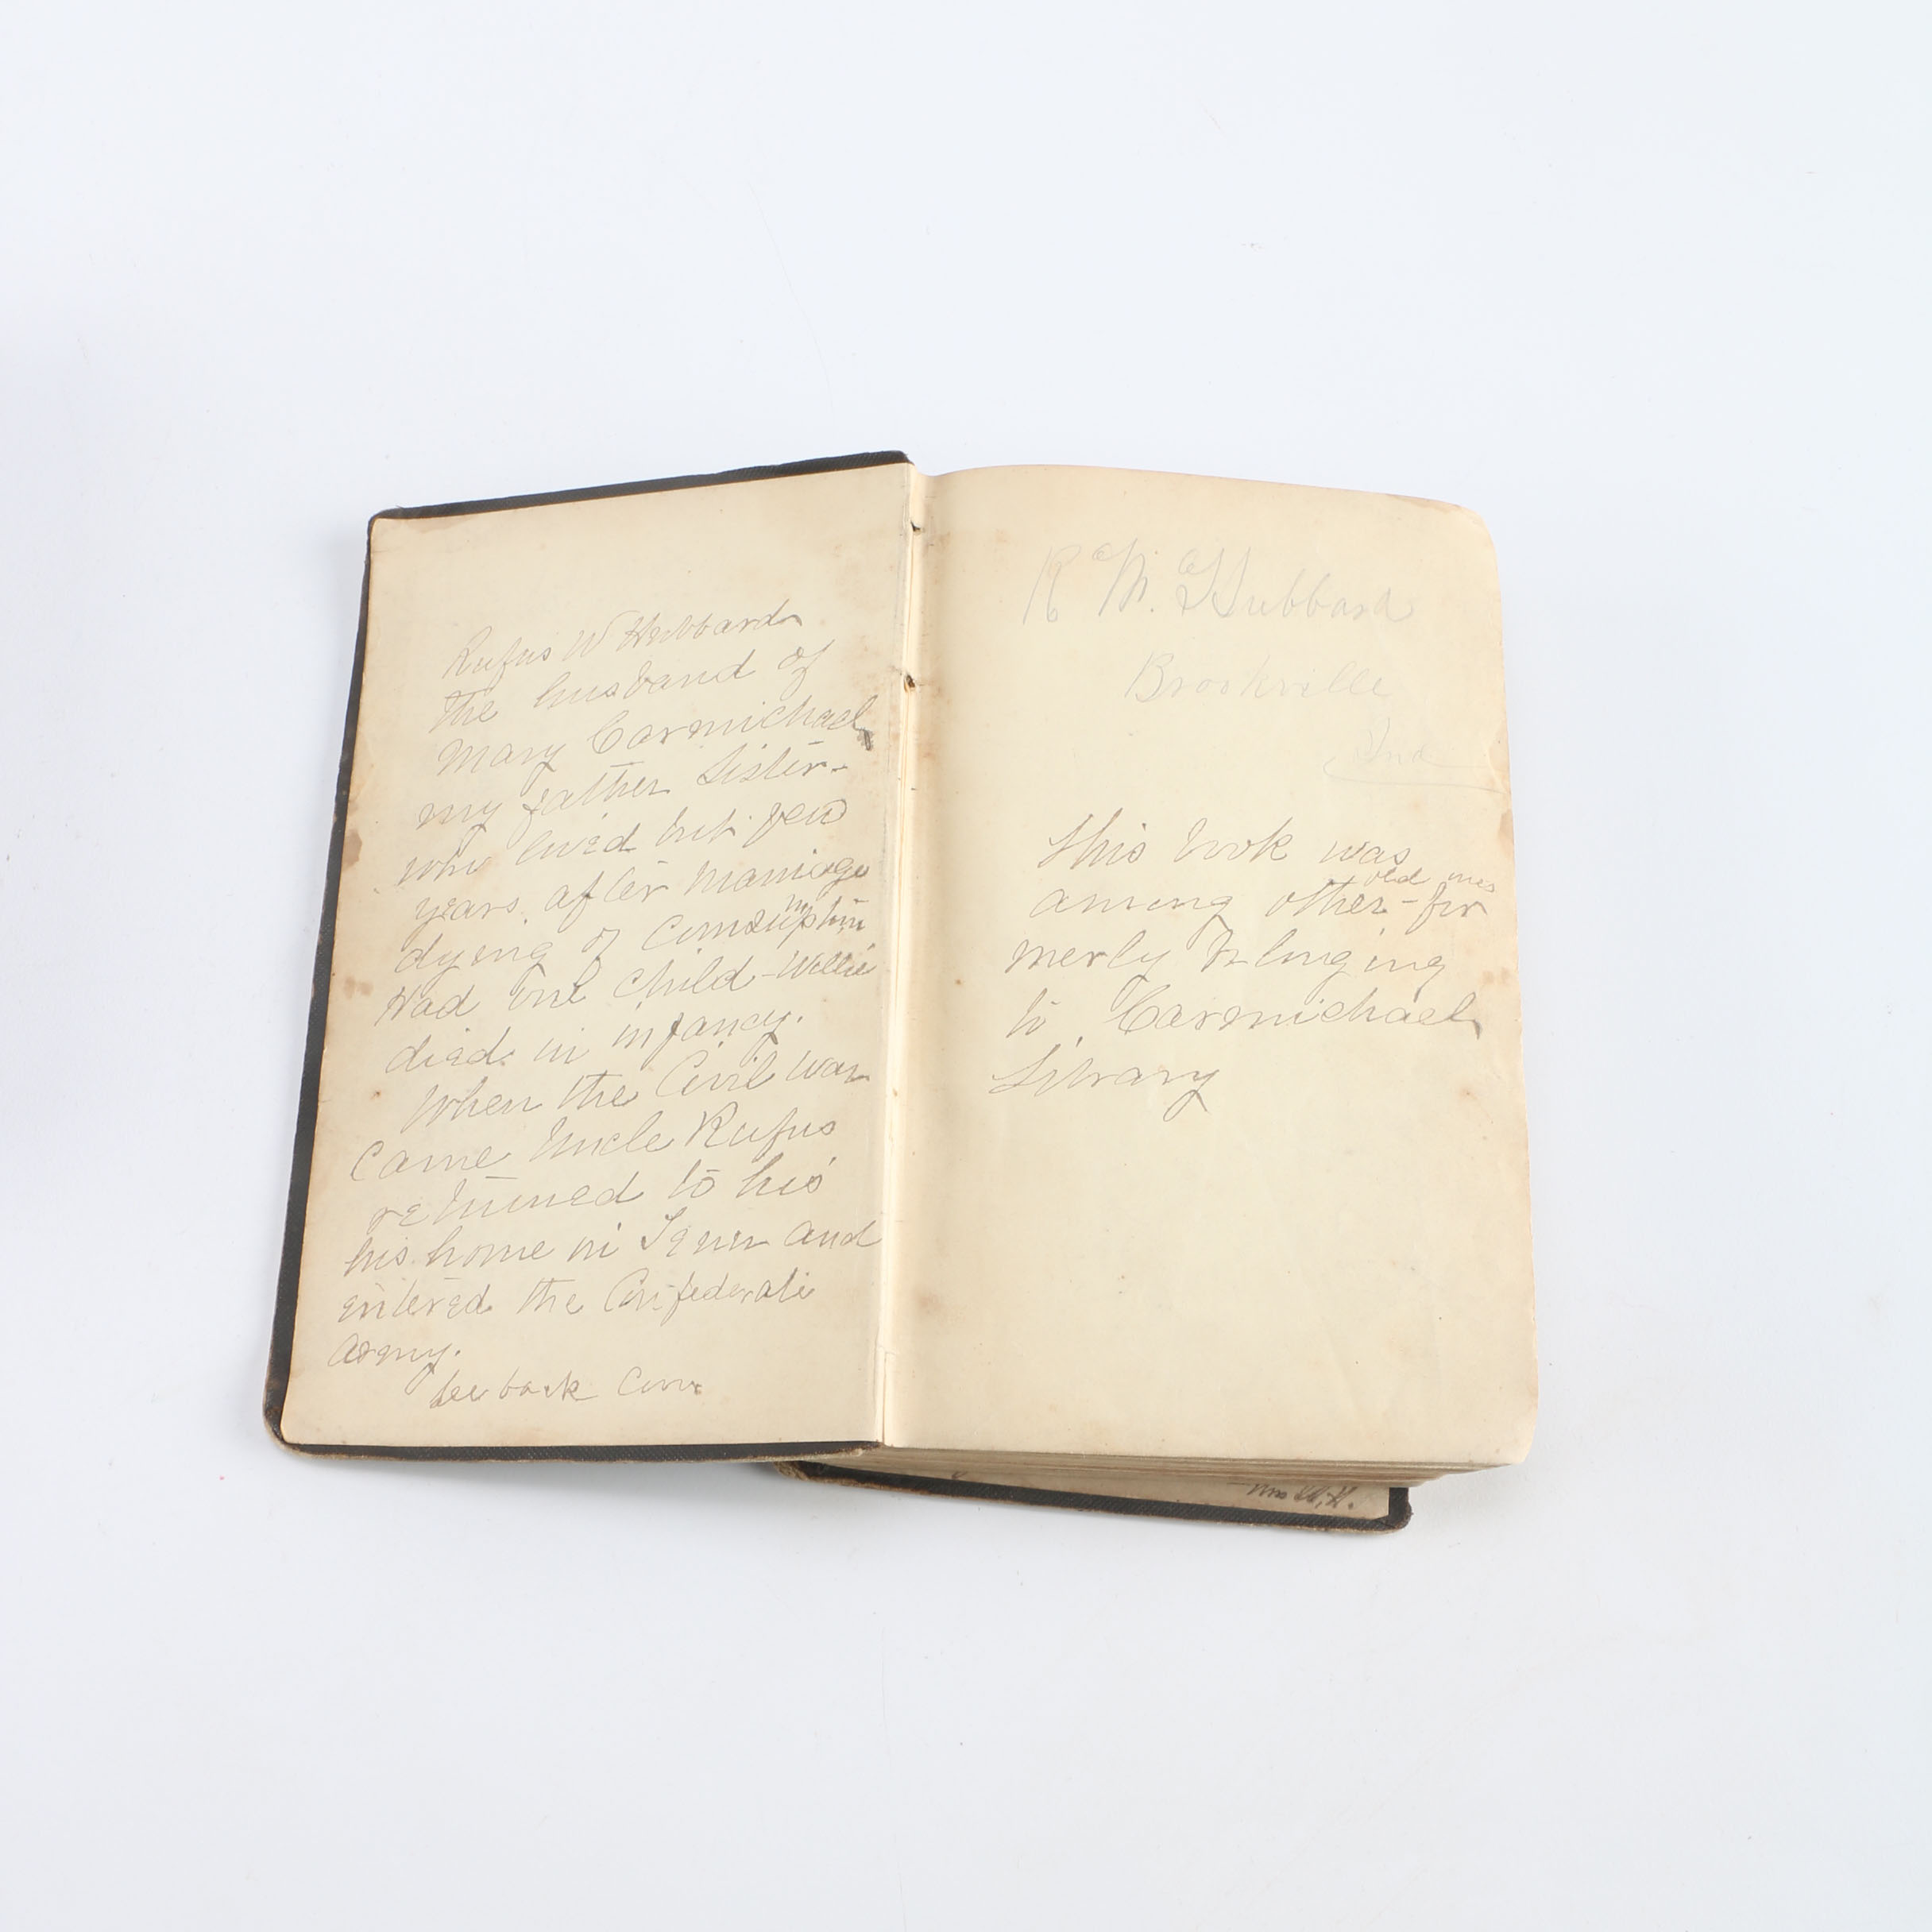 Rufus W Hubbard
the husband of
Mary Carmichael
my father sister-
who lived but few
years after marriage
dying of Comsumption
Had one child-Willie
died in infancy.
When the Civil war
Came Uncle Rufus
returned to his
his home in Tenn and
entered the Confederate
army.
see back Cover
R W. Hubbard
Brookville
Ind
This book was
old ones
among other-for
merly belonging
to Carmichael
Library